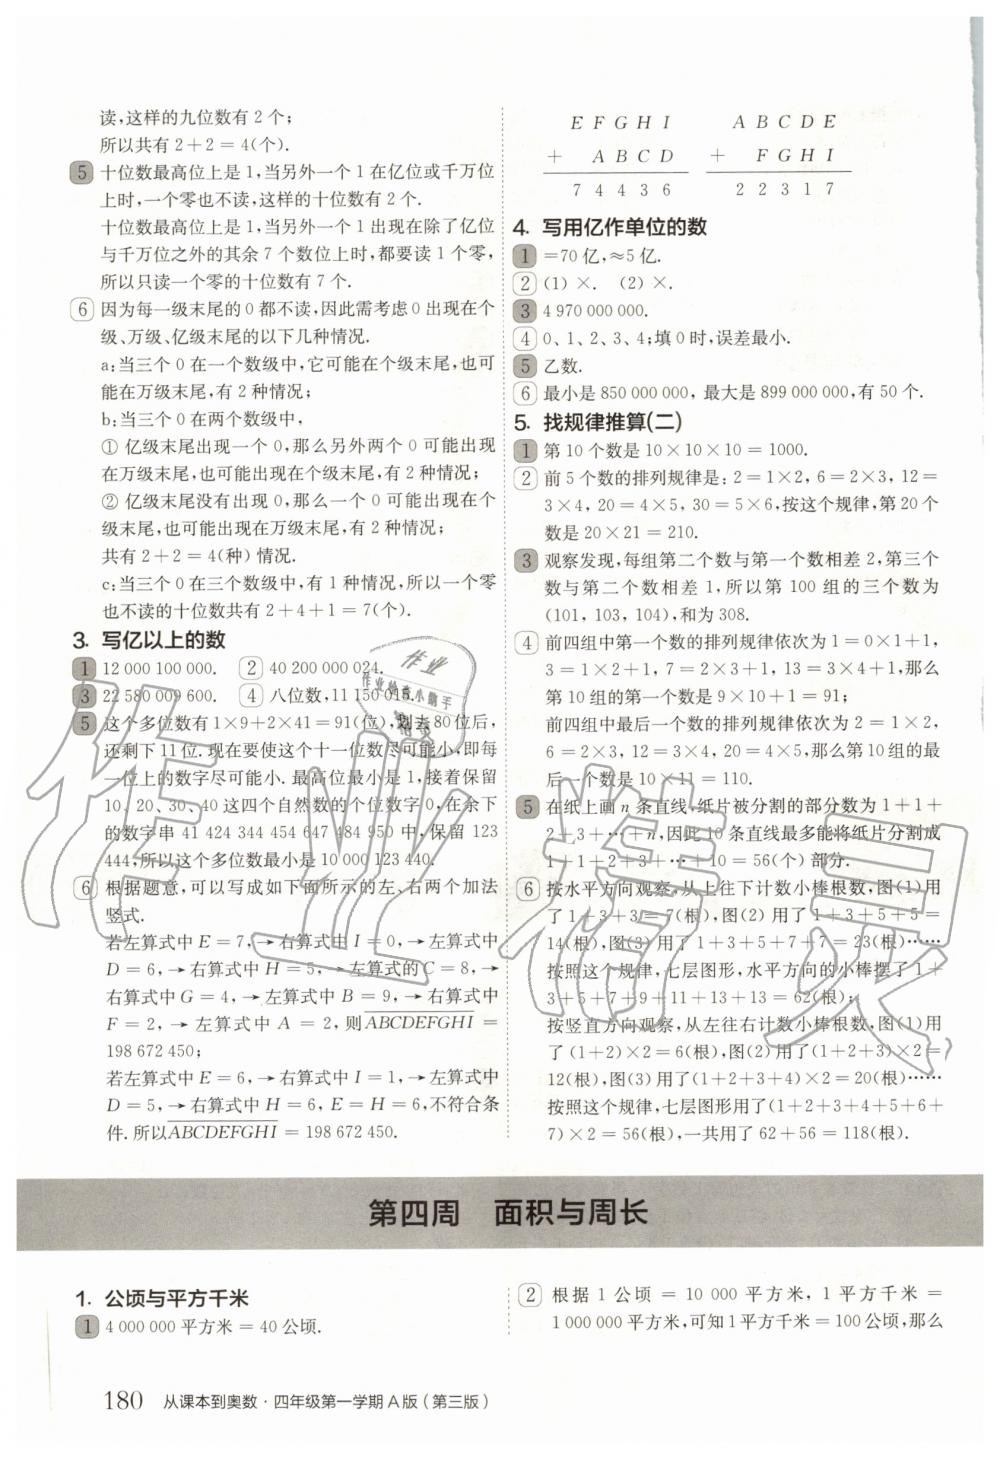 读,这样的九位数有2个;
所以共有2+2=4(个).
5 十位数最高位上是1,当另外一个1在亿位或千万位
上时,一个零也不读,这样的十位数有2个.
十位数最高位上是1,当另外一个1出现在除了亿位
与千万位之外的其余7个数位上时,都要读1个零,
所以只读一个零的十位数有7个.
6 因为每一级末尾的0都不读,因此需考虑0出现在个
级、万级、亿级末尾的以下几种情况.
a:当三个0在一个数级中,它可能在个级末尾,也可
能在万级末尾,有2种情况;
b:当三个0在两个数级中,
① 亿级末尾出现一个0,那么另外两个0可能出现
在万级末尾,也可能出现在个级末尾,有2种情况;
② 亿级末尾没有出现0,那么一个0可能出现在个
级末尾,也可能出现在万级末尾,有2种情况;
共有2+2=4(种)情况.
c:当三个0在三个数级中,有1种情况,所以一个零
也不读的十位数共有2+4+1=7(个).
3. 写亿以上的数
1 12 000 100 000. 2 40 200 000 024.
3 22 580 009 600. 4 八位数,11 150 016.
5 这个多位数有1×9+2×41=91(位),划去80位后,
还剩下11位.现在要使这个十一位数尽可能小,即每
一位上的数字尽可能小.最高位最小是1,接着保留
10、20、30、40这四个自然数的个位数字0,在余下
的数字串41 424 344 454 647 484 950中,保留123
444,所以这个多位数最小是10 000 123 440.
6 根据题意,可以写成如下面所示的左、右两个加法
竖式.
若左算式中E=7,→右算式中I=0,→左算式中
D=6,→右算式中H=5,→左算式的C=8,→
右算式中G=4,→左算式中B=9,→右算式中
F=2,→左算式中A=2,则ABCDEFGHI=
198 672 450;
若左算式中E=6,→右算式中I=1,→左算式中
D=5,→右算式中H=6,E=H=6,不符合条
件.所以ABCDEFGHI=198 672 450.
E F G H I A B C D E
+ A B C D + F G H I
7 4 4 3 6 2 2 3 1 7
4. 写用亿作单位的数
1 =70亿,≈5亿.
2 (1) ×. (2) ×.
3 4 970 000 000.
4 0、1、2、3、4;填0时,误差最小.
5 乙数.
6 最小是850 000 000,最大是899 000 000,有50个.
5. 找规律推算(二)
1 第10个数是10×10×10=1000.
2 前5个数的排列规律是:2=1×2,6=2×3,12=
3×4,20=4×5,30=5×6,按这个规律,第20个
数是20×21=210.
3 观察发现,每组第二个数与第一个数相差2,第三个
数与第二个数相差1,所以第100组的三个数为
(101,103,104),和为308.
4 前四组中第一个数的排列规律依次为1=0×1+1,
3=1×2+1,7=2×3+1,13=3×4+1,那么
第10组的第一个数是9×10+1=91;
前四组中最后一个数的排列规律依次为2=1×2,
6=2×3,12=3×4,20=4×5,那么第10组的最
后一个数是10×11=110.
5 在纸上画n条直线,纸片被分割的部分数为1+1+
2+3+…+n,因此10条直线最多能将纸片分割成
1+1+2+3+…+10=56(个)部分.
6 按水平方向观察,从上往下计数小棒根数,图(1)用
了1+3+3=7(根),图(2)用了1+3+5+5=
14(根),图(3)用了1+3+5+7+7=23(根)……
按照这个规律,七层图形,水平方向的小棒摆了1+
3+5+7+9+11+13+13=62(根);
按竖直方向观察,从左往右计数小棒根数,图(1)用
了(1+2)×2=6(根),图(2)用了(1+2+3)×2=
12(根),图(3)用了(1+2+3+4)×2=20(根)……
按照这个规律,七层图形用了(1+2+3+4+5+6+
7)×2=56(根),一共用了62+56=118(根).
第四周 面积与周长
1. 公顷与平方千米
1 4 000 000平方米=40公顷.
2 根据1公顷=10 000平方米,1平方千米=
1 000 000平方米,可知1平方千米=100公顷,那么
180 从课本到奥数·四年级第一学期A版(第三版)
作业精灵